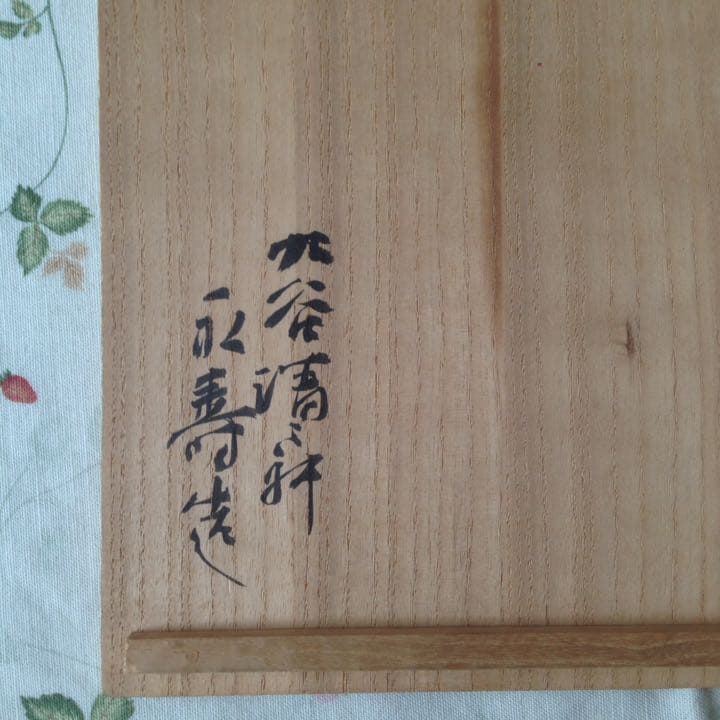 九谷清々軒
永寿造